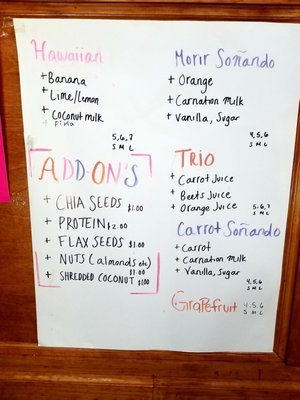 Hawaiian
+ Banana
+ Lime/lemon
+ Coconut milk
+ Piña
5,6,7
S M L
ADD-ON'S
+ CHIA SEEDS $1.00
+ PROTEIN $2.00
+ FLAX SEEDS $1.00
+ NUTS (almonds etc)
$1.00
+ SHREDDED COCONUT $1.00
Morir Soñando
+ Orange
+ Carnation milk
+ Vanilla, Sugar
4,5,6
S M L
TRIO
+ Carrot Juice
+ Beets Juice
+ Orange Juice 5,6,7
S M L
Carrot Soñando
+ Carrot
+ Carnation milk
+ Vanilla, Sugar
4,5,6
S M L
GRAPEfruit 4.5.6
S M L